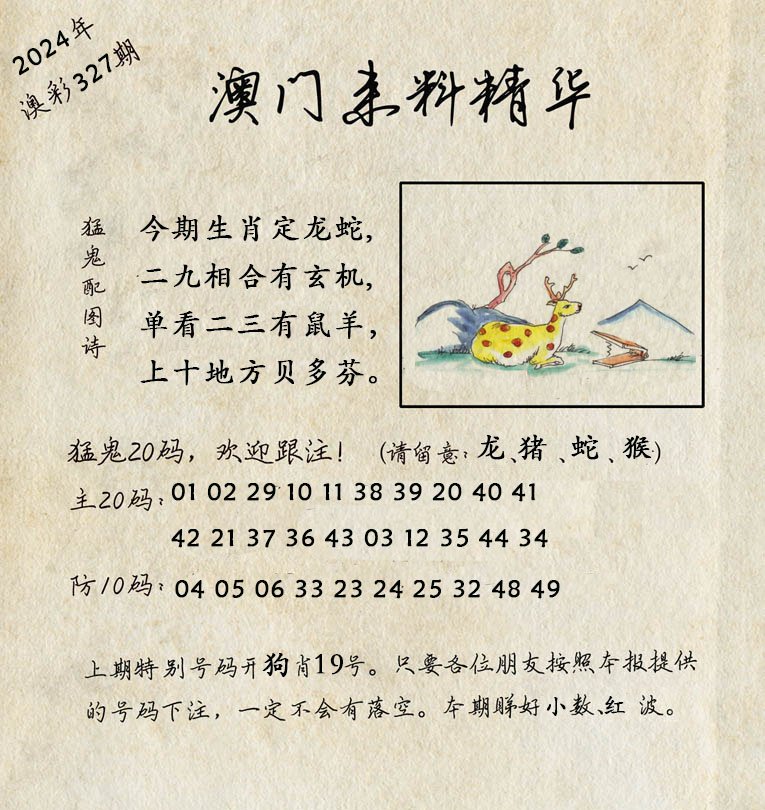 2024年
澳彩327期
澳门来料精华
猛鬼配图诗
今期生肖定龙蛇,
二九相合有玄机,
单看二三有鼠羊,
上十地方贝多芬。
猛鬼20码，欢迎跟注！ (请留意：龙、猪、蛇、猴)
主20码：01 02 29 10 11 38 39 20 40 41
42 21 37 36 43 03 12 35 44 34
防10码：04 05 06 33 23 24 25 32 48 49
上期特别号码开狗肖19号。只要各位朋友按照本报提供
的号码下注，一定不会有落空。本期睇好小数、红 波。